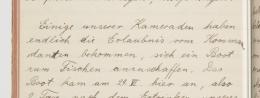 Einige unserer Kameraden haben
endlich die Erlaubnis vom
bekommen, sich ein Boot
zum Fischen anzuschaffen. Das
Boot kam am 29. VI. hier an, also
2 Tage nach dem